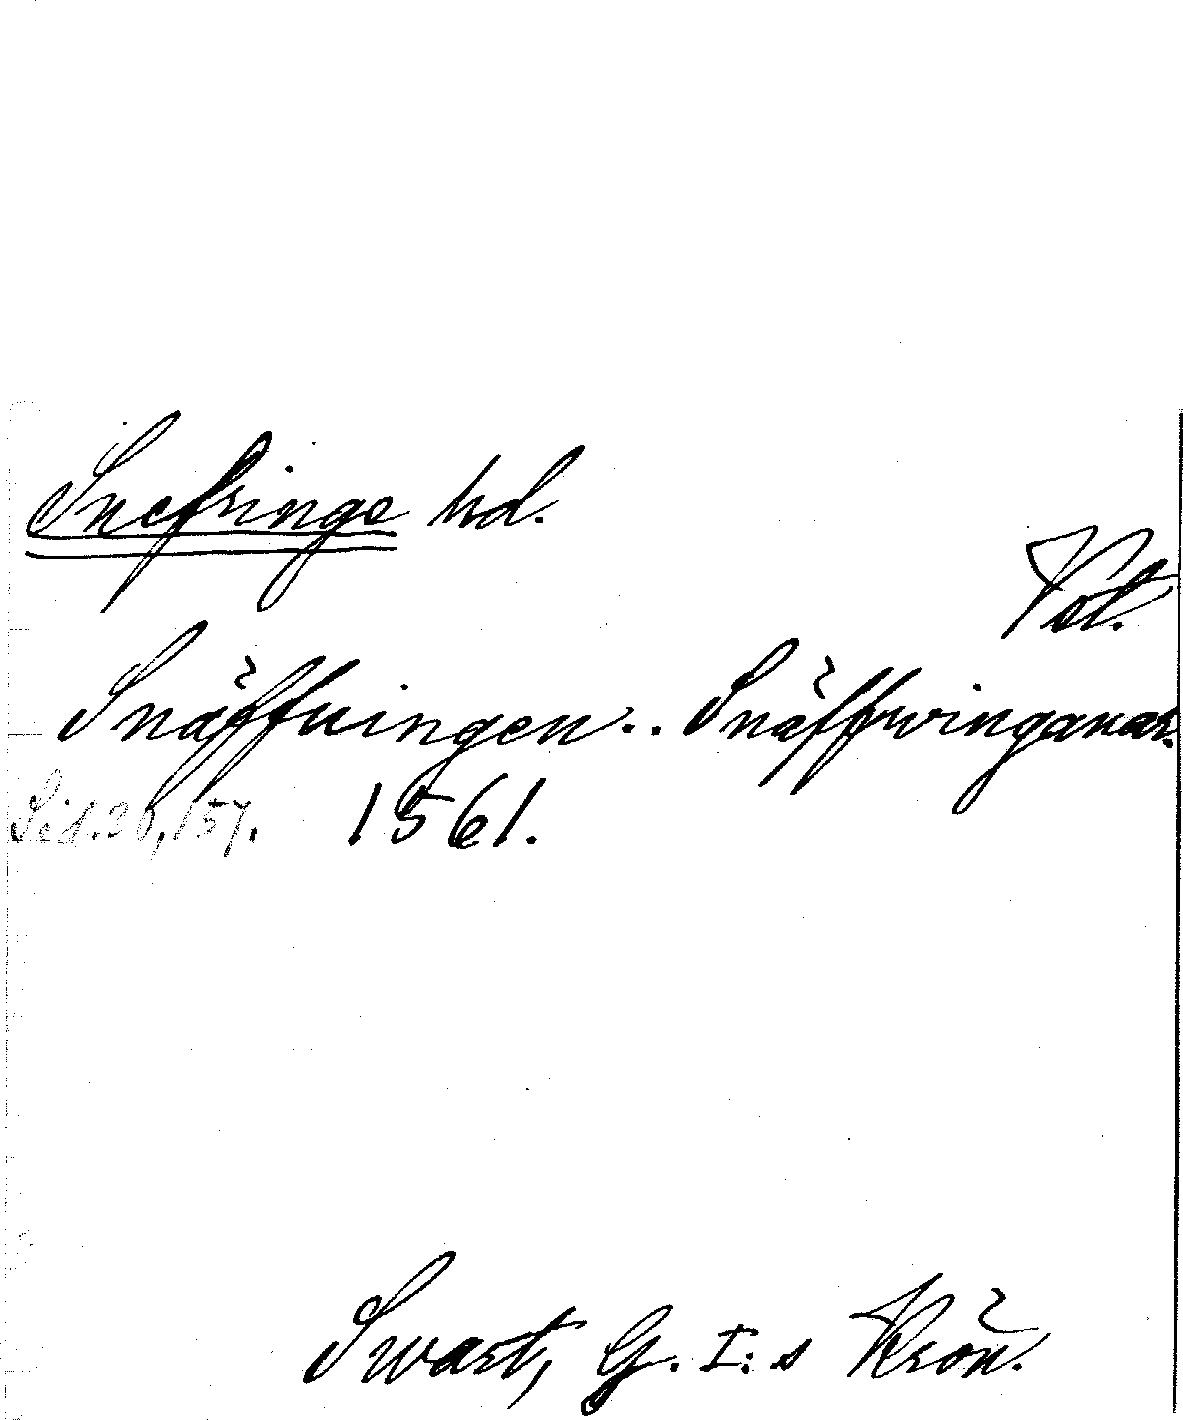 Snefringe hd.
Vst.
Snäffuingen.. Snäffwinganar.
Sid. 20, 157. 1561.
Swart, G. I:s Krön.